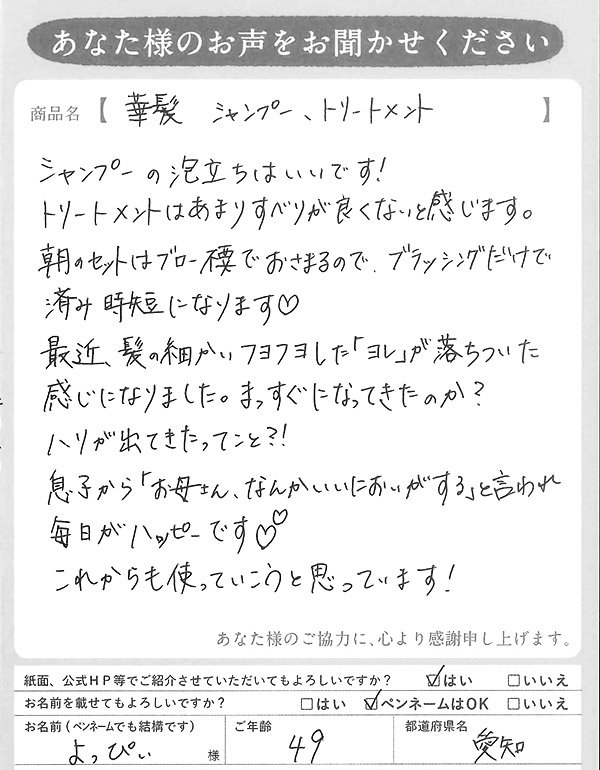 あなた様のお声をお聞かせください
商品名【 華髪 シャンプー、トリートメント 】
シャンプーの泡立ちはいいです!
トリートメントはあまりすべりが良くないと感じます。
朝のセットはブロー後でおさまるので、ブラッシングだけで
済み時短になります♡
最近、髪の細かいフヨフヨした「ヨレ」が落ちついた
感じになりました。まっすぐになってきたのか?
ハリが出てきたってこと?!
息子から「お母さん、なんかいいにおいがする」と言われ
毎日がハッピーです♡♡
これからも使っていこうと思っています!
あなた様のご協力に、心より感謝申し上げます。
紙面、公式HP等でご紹介させていただいてもよろしいですか? ☑はい □いいえ
お名前を載せてもよろしいですか? □はい ☑ペンネームはOK □いいえ
お名前(ペンネームでも結構です) ご年齢 都道府県名
よっぴぃ 様 49 愛知